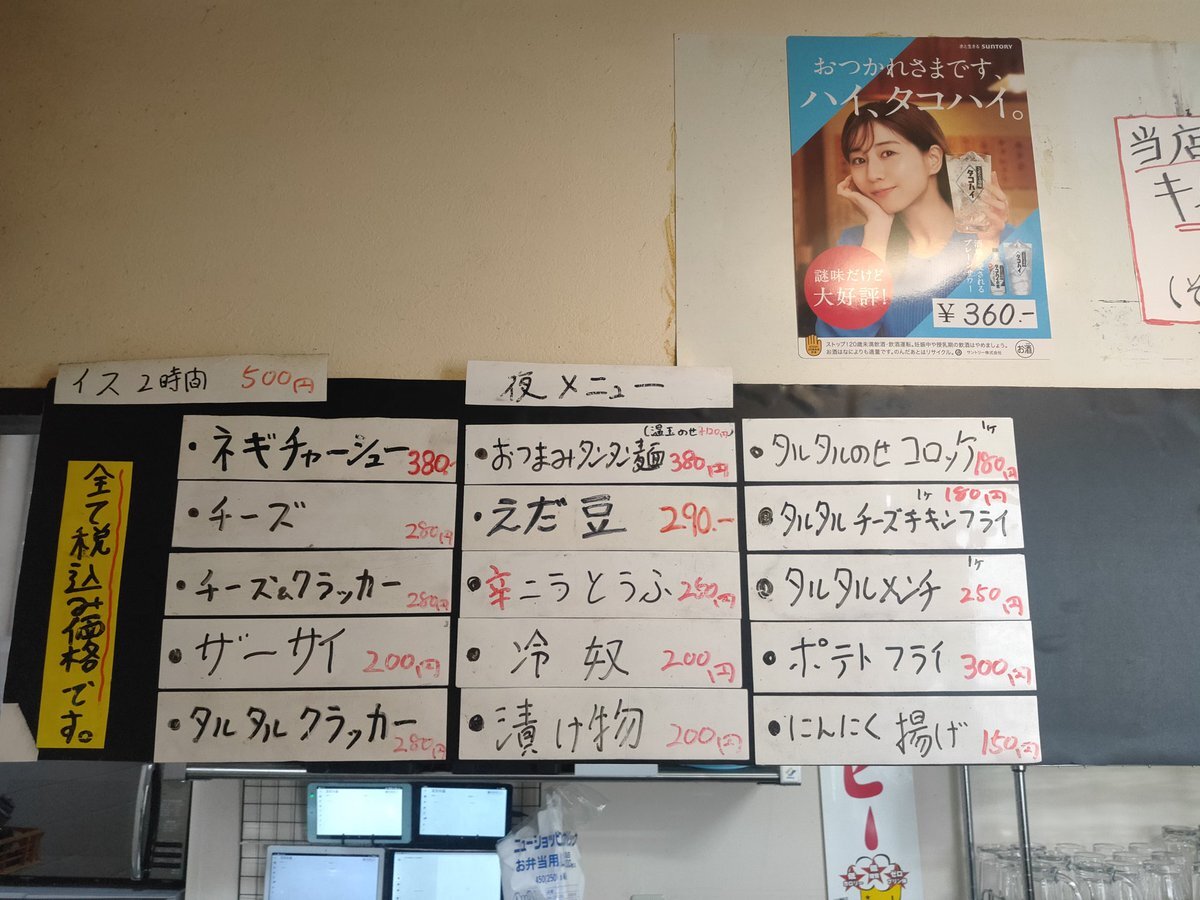 水と生きる SUNTORY
おつかれさまです、
ハイ、タコハイ。
タコハイ
謎味だけど
大好評!
プレーンサワー
¥360.-
ストップ!20歳未満飲酒・飲酒運転。妊娠中や授乳期の飲酒はやめましょう。
お酒はなによりも適量です。のんだあとはリサイクル。
サントリー株式会社
お酒
当店
イス 2時間 500円
夜メニュー
全て税込み価格です。
・ネギチャーシュー 380.-
・チーズ 280円
・チーズ&クラッカー 280円
・ザーサイ 200円
・タルタルクラッカー 280円
(温玉のせ+120円)
・おつまみタンタン麺 380円
・えだ豆 290.-
・辛ニラとうふ 250円
・冷奴 200円
・漬け物 200円
・タルタルのせコロッケ 1ケ 180円
1ケ 180円
・タルタルチーズチキンフライ
・タルタルメンチ 1ケ 250円
・ポテトフライ 300円
・にんにく揚げ 150円
お弁当用
ビー